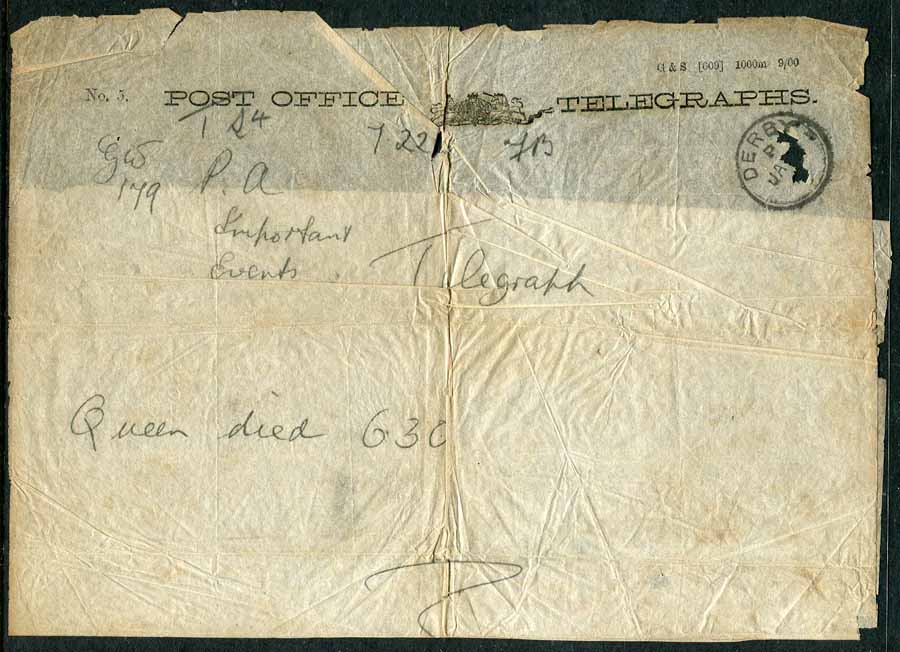 G & S [609] 1000m 9/00
No. 5. POST OFFICE TELEGRAPHS.
DERBY
JA
7 22 JB
179 P. A
Important
Events Telegraph
Queen died 630